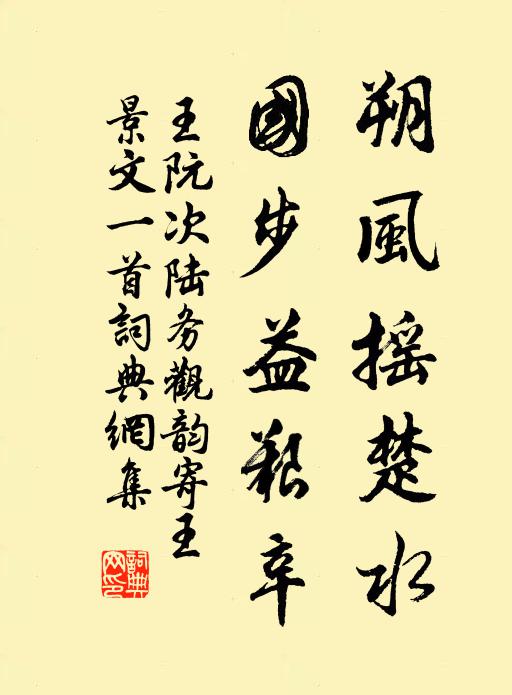 朔風摇楚水
國步益艱辛
王阮次陆务觀韵寄王
景文一首詞典網集
詞典網印